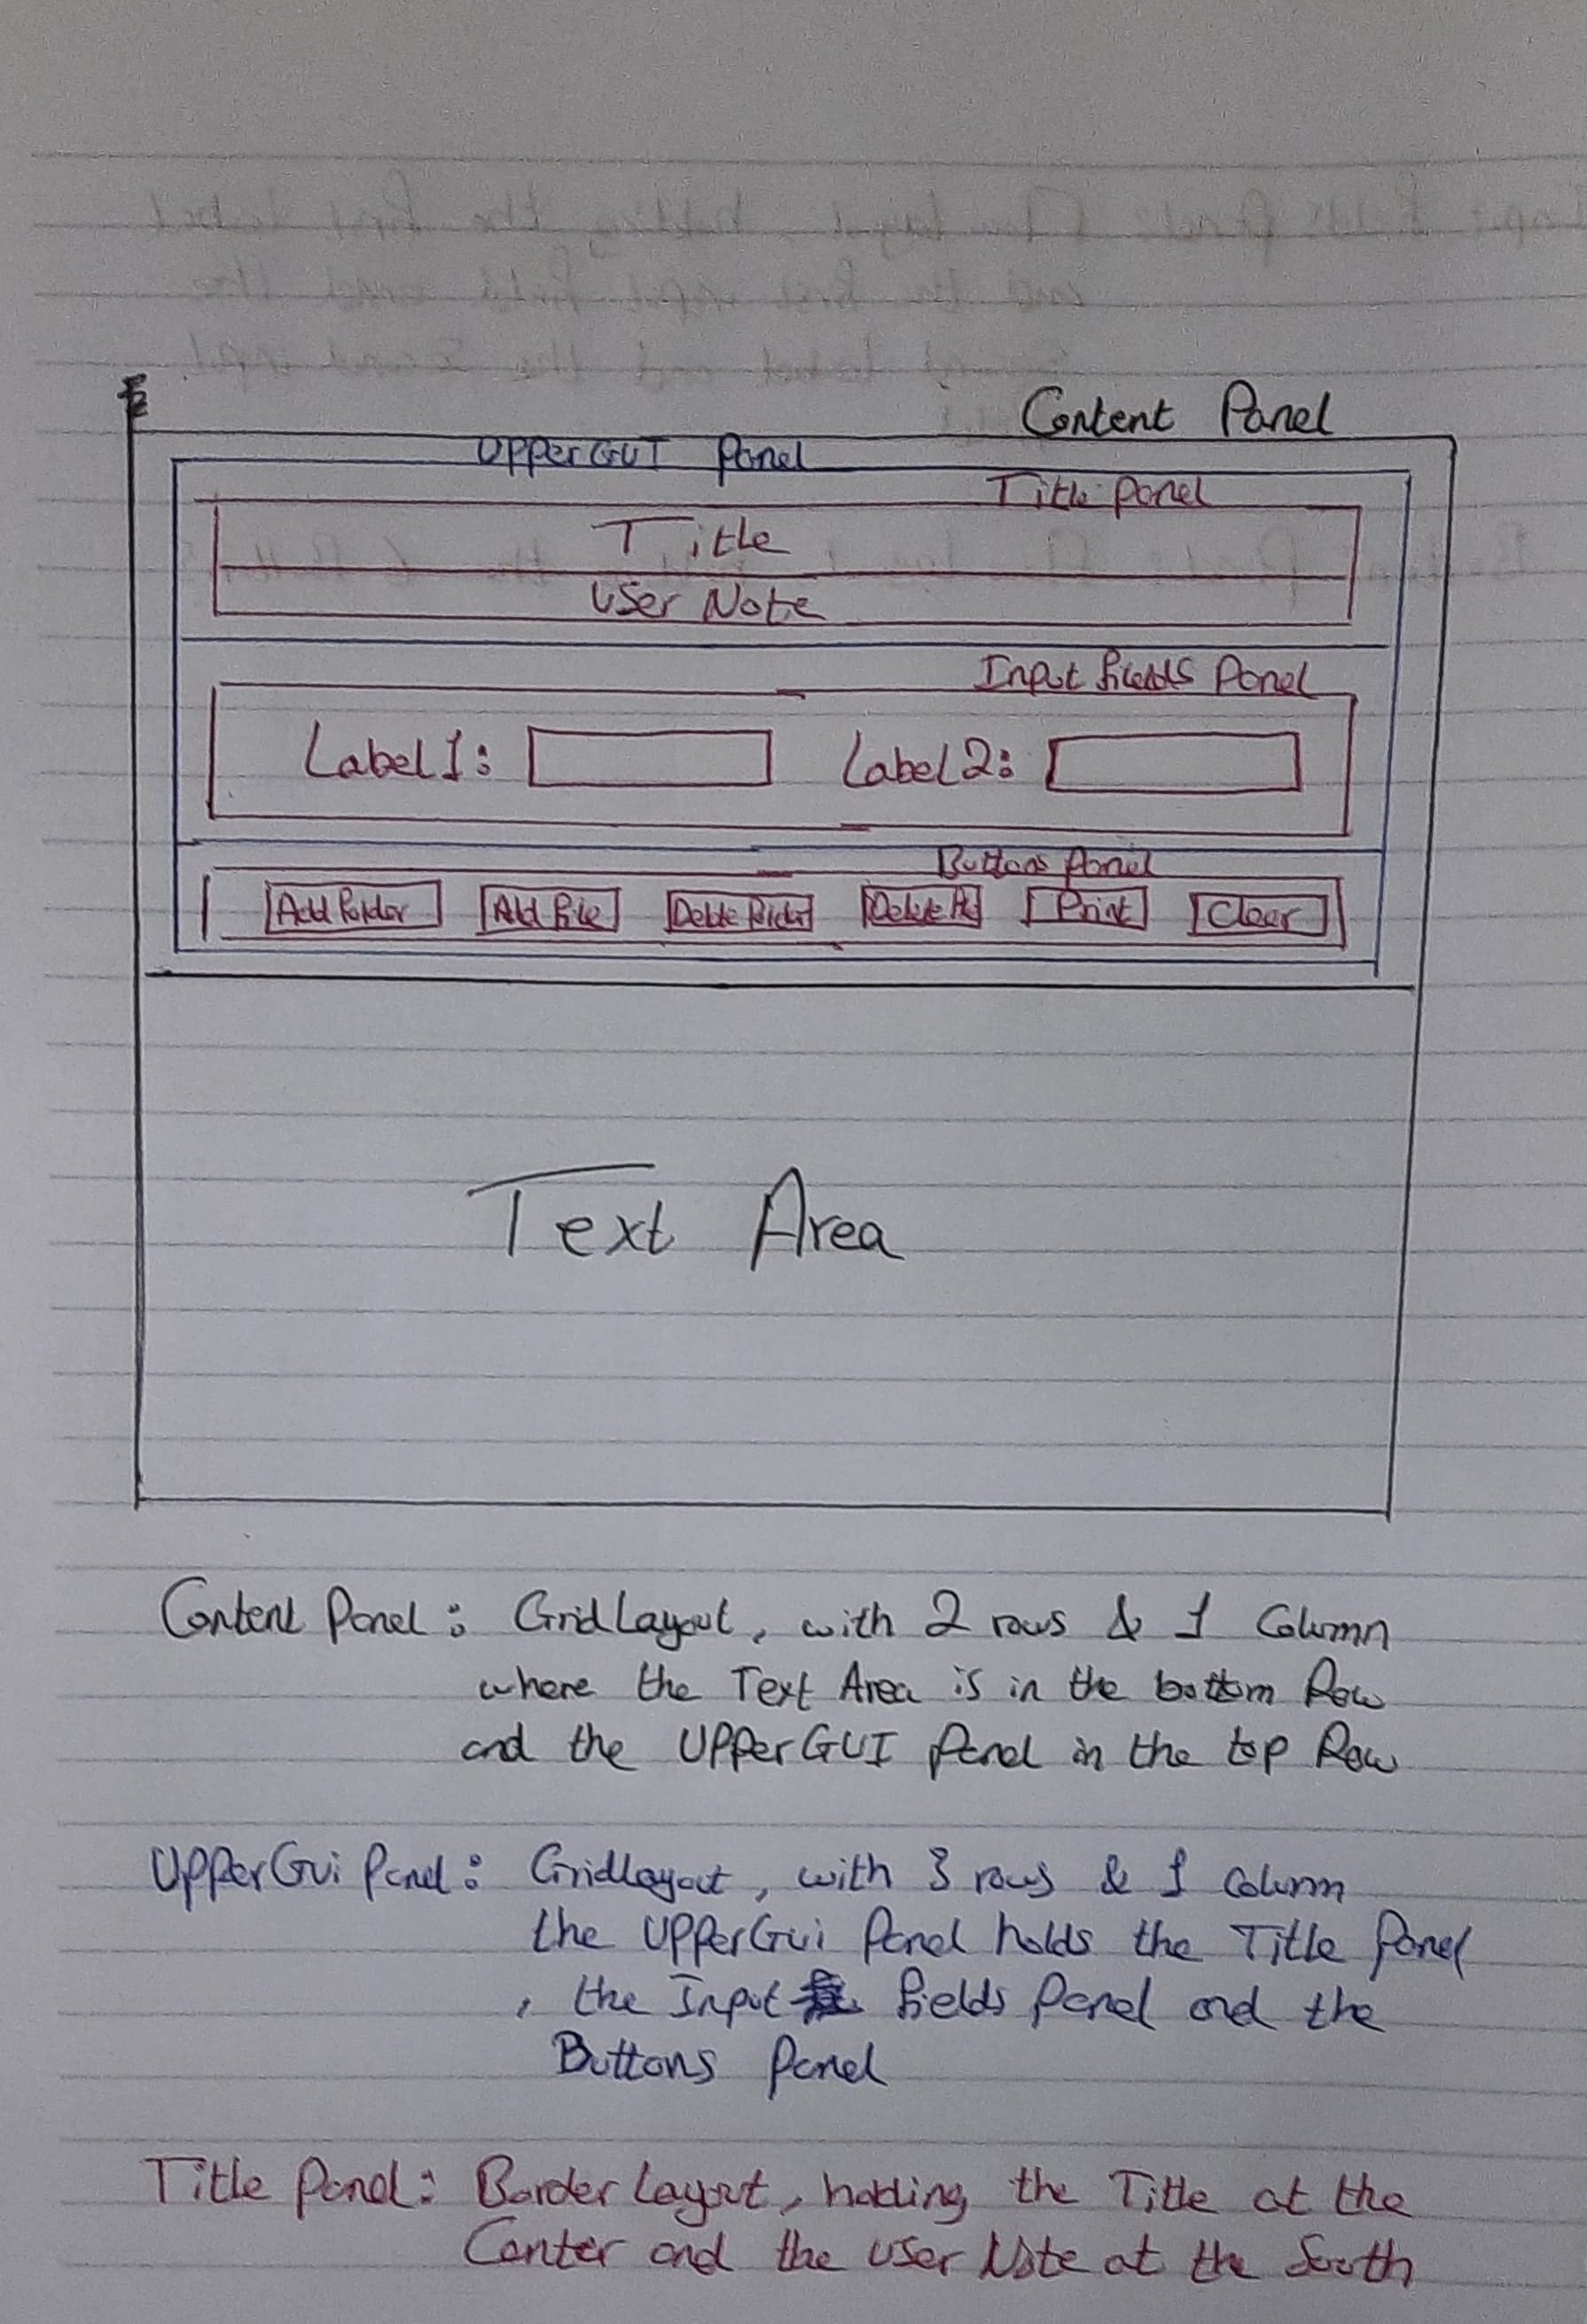 Content Panel
UpperGUI Panel
Title Panel
Title
User Note
Input fields Panel
Label1: Label2:
Buttons Panel
Add folder Add file Delete Folder Delete file Print Clear
Text Area
Content Panel: GridLayout, with 2 rows & 1 Column
where the Text Area is in the bottom Row
and the UpperGUI Panel in the top Row
UpperGui Panel: GridLayout, with 3 rows & 1 Column
the UpperGui Panel holds the Title Panel
, the Input fields Panel and the
Buttons Panel
Title Panel: Border Layout, holding the Title at the
Center and the user Note at the South